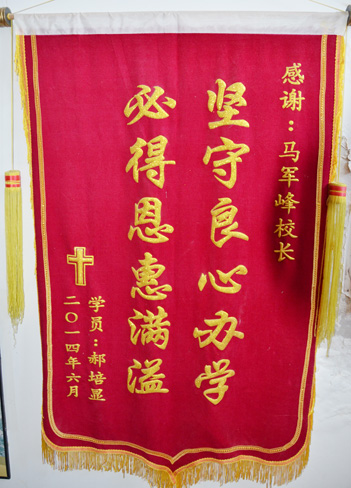 感谢：马军峰校长
坚守良心办学
必得恩惠满溢
学员：郝培显
二〇一四年六月